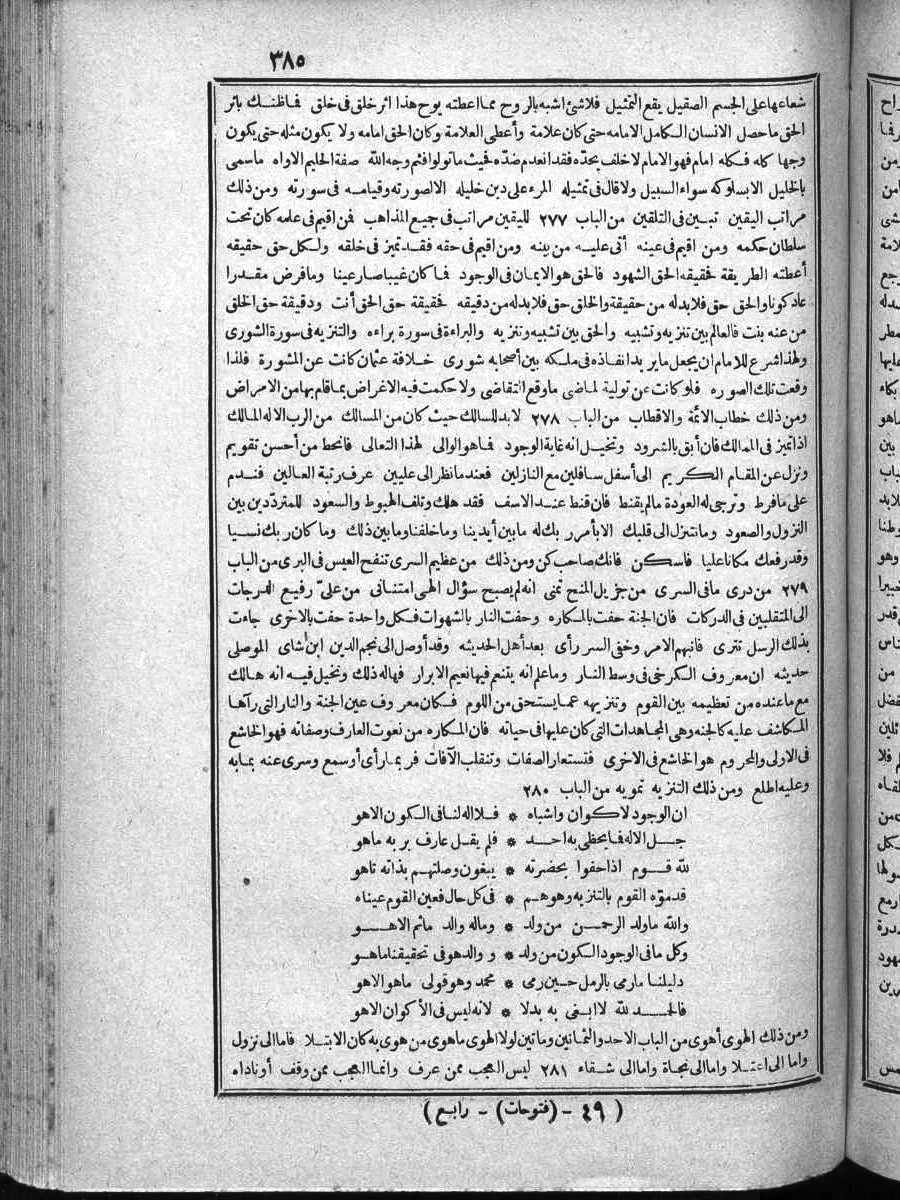 ٣٨٥
شعاعها على الجسم الصقيل يقع التمثيل فلا شئ اشبه بالروح مما اعطته يوح هذا اثر خلق فى خلق فما ظنك باثر
الحق ما حصل الانسان الكامل الامامه حتى كان علامة وأعطى العلامة وكان الحق امامه ولا يكون مثله حتى يكون
وجها كله فكله امام فهو الامام لا خلف يحدّه فقد انعدم ضدّه فحيث ما تولوا فثم وجه الله صفة الحليم الاواه ما سمى
بالخليل الا بسلوكه سواء السبيل ولا قال فى تمثيله المرء على دين خليله الا لصورته وقيامه فى سورته ومن ذلك
مراتب اليقين تبين فى التلقين من الباب ٢٧٧ لليقين مراتب فى جميع المذاهب فمن اقيم فى علمه كان تحت
سلطان حكمه ومن اقيم فى عينه أتى عليه من بينه ومن اقيم فى حقه فقد تميز فى خلقه ولكل حق حقيقه
أعطته الطريقة فحقيقه الحق الشهود فالحق هو الايمان فى الوجود فما كان غيبا صار عينا وما فرض مقدرا
عاد كونا والحق حق فلا بد له من حقيقة والخلق حق فلا بد له من دقيقه فحقيقة حق الحق أنت ودقيقة حق الخلق
من عنه بنت فالعالم بين تنزيه وتشبيه والحق بين تشبيه وتنزيه والبراءة فى سورة براءه والتنزيه فى سورة الشورى
ولهذا شرع للامام ان يجعل ما يريد انفاذه فى ملكه بين أصحابه شورى خلافة عثمان كانت عن المشورة فلذا
وقعت تلك الصوره فلو كانت عن تولية لماضى ما وقع التقاضى ولا حكمت فيه الاغراض بما قام بها من الامراض
ومن ذلك خطاب الائمة والاقطاب من الباب ٢٧٨ لا بد للسالك حيث كان من المسالك من الرب الاله المالك
اذا تميز فى الممالك فان أبق بالشرود وتخيل انه غاية الوجود فما هو الوالى لهذا التعالى فانحط من أحسن تقويم
ونزل عن المقام الكريم الى أسفل سافلين مع النازلين فعندما نظر الى عليين عرف رتبة العالين فندم
على ما فرط وترجى له العودة ما لم يقنط فان قنط عند الاسف فقد هلك وتلف الهبوط والسعود للمتردّدين بين
النزول والصعود وما نتنزل الى قلبك الا بأمر ربك له ما بين أيدينا وما خلفنا وما بين ذلك وما كان ربك نسيا
وقد رفعك مكانا عليا فاسكن فانك صاحب كن ومن ذلك من عظيم السرى تنفح العيس فى البرى من الباب
٢٧٩ من درى ما فى السرى من جزيل المنح تمنى انه لم يصبح سؤال الهى امتنانى من علىّ رفيع الدرجات
الى المتقلبين فى الدركات فان الجنة حفت بالمكاره وحفت النار بالشهوات فكل واحدة حفت بالاخرى جاءت
بذلك الرسل تترى فانبهم الامر وخفى السر رأى بعد أهل الحديثه وقد أوصل الى نجم الدين ابن شاى الموصلى
حديثه ان معروف الكرخى فى وسط النار وما علم انه يتنعم فيها نعيم الابرار فهاله ذلك وتخيل فيه انه هالك
مع ما عنده من تعظيمه بين القوم وتنزيهه عما يستحق من اللوم فكان معروف عين الجنة والنار التى رآها
المكاشف عليه كالجنه وهى المجاهدات التى كان عليها فى حياته فان المكاره من نعوت العارف وصفاته فهو الخاشع
فى الاولى والمحروم هو الخاشع فى الاخرى فتستعار الصفات وتنقلب الآفات فربما رأى أو سمع وسرى عنه بما به
وعليه اطلع ومن ذلك التنزيه تمويه من الباب ٢٨٠
ان الوجود لا كوان واشباه * فلا اله لنا فى الكون الا هو
جل الاله فما يحظى به احد * فلم يقل عارف بربه ما هو
لله قوم اذا حفوا بحضرته * يبغون وصلتهم بذاته تاهو
قد موّه القوم بالتنزيه وهو هم * فى كل حال فعين القوم عيناه
والله ما ولد الرحمن من ولد * وما له والد ما ثم الا هو
وكل ما فى الوجود الكون من ولد * و والد هو فى تحقيقنا ما هو
دليلنا ما رمى بالرمل حين رمى * محمد وهو قولى ما هو الا هو
فالحمد لله لا ابغى به بدلا * لانه ليس فى الأكوان الا هو
ومن ذلك الهوى أهوى من الباب الاحد والثمانين ومائتين لولا الهوى ما هوى من هوى به كان الابتلا فاما الى نزول
واما الى اعتلا واما الى نجاة واما الى شقاء ٢٨١ ليس العجب ممن عرف وانما العجب ممن وقف أو ناداه
( ٤٩ - (فتوحات) - رابع )